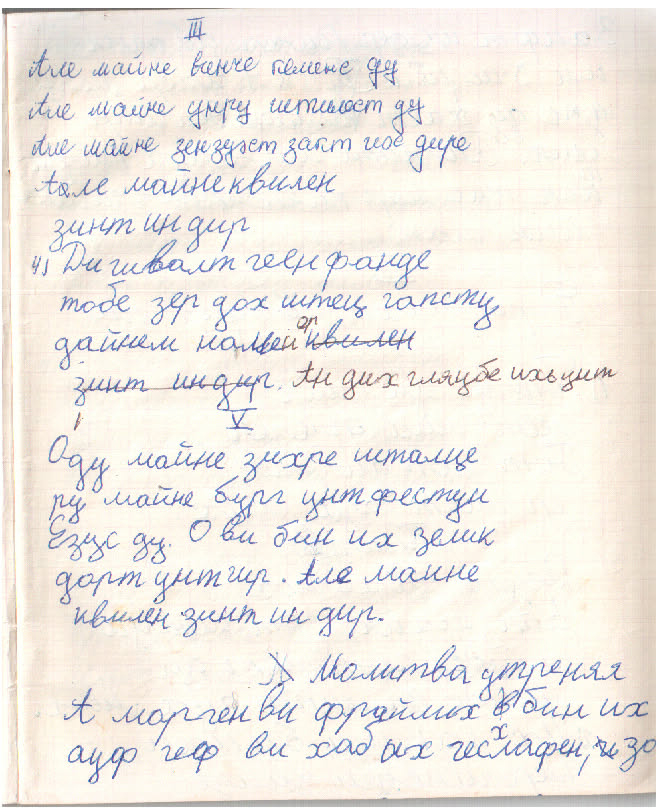 III
Але майне ванче каменс ду
Але майне унру штилост ду
Але майне зензухт закт нос дире
Аале майне квилен
зинт ин дир
4) Ди гивалт геен фанде
тобе зер дох штец гапсту
дайнем намен ор квилен
зинт ин дир. Ан дих гляубе ихь унт
V
О ду майне зихре шталце
ру майне бург унт фестун
Езус ду. О ви бин их зелик
дорт унт гир. Але маине
квилен зинт ин дир.
Молитва утреняя
А морген ви фрай мих в бин их
ауф геф ви хаб их чесхлафен, зо